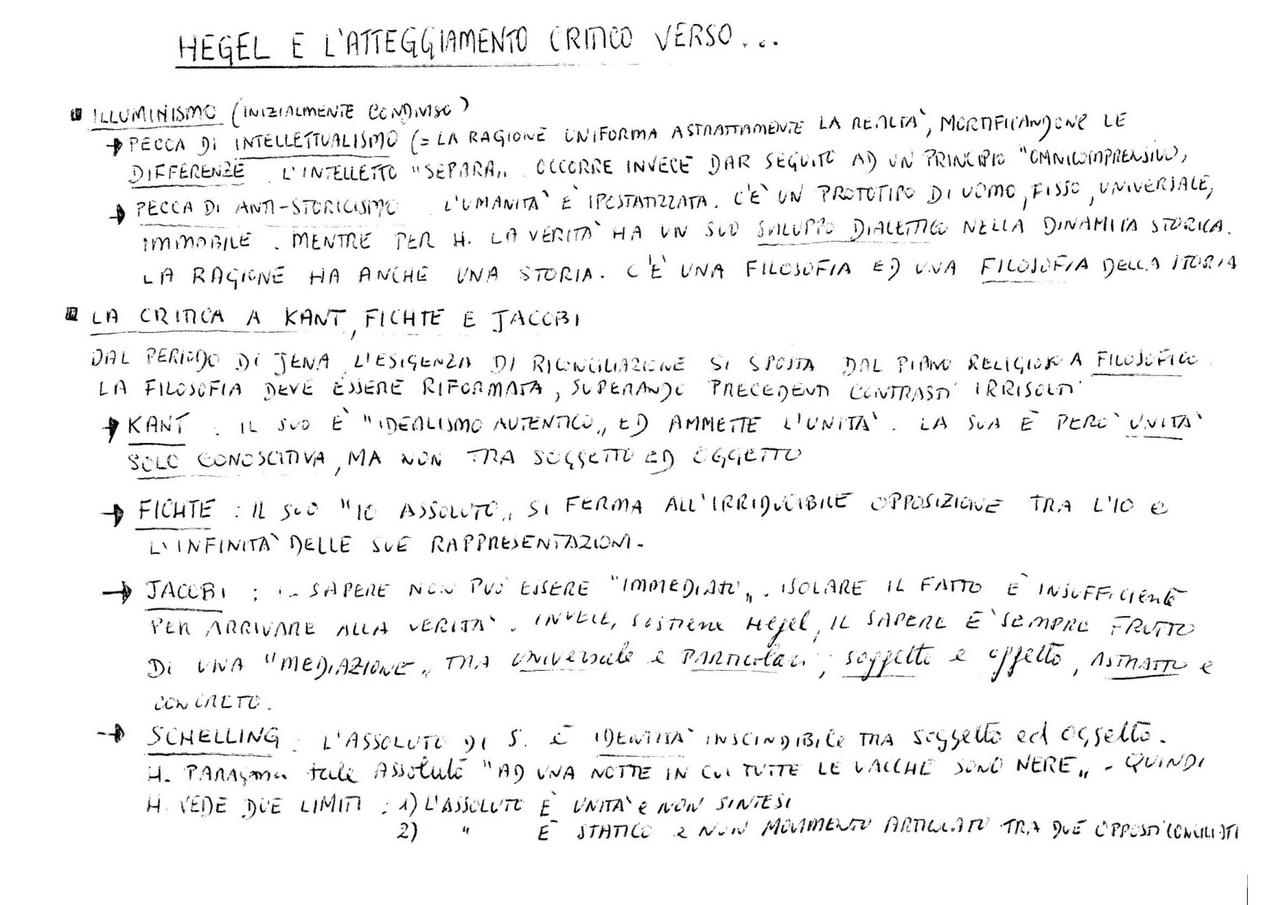 HEGEL E L'ATTEGGIAMENTO CRITICO VERSO...
ILLUMINISMO (INIZIALMENTE CONDIVISO)
→ PECCA DI INTELLETTUALISMO (= LA RAGIONE UNIFORMA ASTRATTAMENTE LA REALTÀ, MORTIFICANDONE LE
DIFFERENZE. L'INTELLETTO "SEPARA". OCCORRE INVECE DAR SEGUITO AD UN PRINCIPIO "OMNICOMPRENSIVO"
→ PECCA DI ANTI-STORICISMO. L'UMANITÀ È IPOSTATIZZATA. C'È UN PROTOTIPO DI UOMO, FISSO, UNIVERSALE,
IMMOBILE. MENTRE PER H. LA VERITÀ HA UN SUO SVILUPPO DIALETTICO NELLA DINAMICA STORICA.
LA RAGIONE HA ANCHE UNA STORIA. C'È UNA FILOSOFIA ED UNA FILOSOFIA DELLA STORIA
LA CRITICA A KANT, FICHTE E JACOBI
DAL PERIODO DI JENA L'ESIGENZA DI RICONCILIAZIONE SI SPOSTA DAL PIANO RELIGIOSO A FILOSOFICO.
LA FILOSOFIA DEVE ESSERE RIFORMATA, SUPERANDO PRECEDENTI CONTRASTI IRRISOLTI
→ KANT: IL SUO È "IDEALISMO AUTENTICO" ED AMMETTE L'UNITÀ. LA SUA È PERÒ UNITÀ
SOLO CONOSCITIVA, MA NON TRA SOGGETTO ED OGGETTO
→ FICHTE: IL SUO "IO ASSOLUTO" SI FERMA ALL'IRRIDUCIBILE OPPOSIZIONE TRA L'IO e
L'INFINITÀ DELLE SUE RAPPRESENTAZIONI.
→ JACOBI: IL SAPERE NON PUÒ ESSERE "IMMEDIATO". ISOLARE IL FATTO È INSUFFICIENTE
PER ARRIVARE ALLA VERITÀ. INVECE, SOSTIENE Hegel, IL SAPERE È SEMPRE FRUTTO
DI UNA "MEDIAZIONE" TRA UNIVERSALE e PARTICOLARE, soggetto e oggetto, ASTRATTO e
CONCRETO.
→ SCHELLING: L'ASSOLUTO DI S. È IDENTITÀ INSCINDIBILE TRA soggetto ed oggetto.
H. PARAGONA tale ASSOLUTO "AD UNA NOTTE IN CUI TUTTE LE VACCHE SONO NERE". QUINDI
H. VEDE DUE LIMITI: 1) L'ASSOLUTO È UNITÀ e NON SINTESI
2) " È STATICO e NON MOVIMENTO ARTICOLATO TRA DUE OPPOSTI CONCILIATI